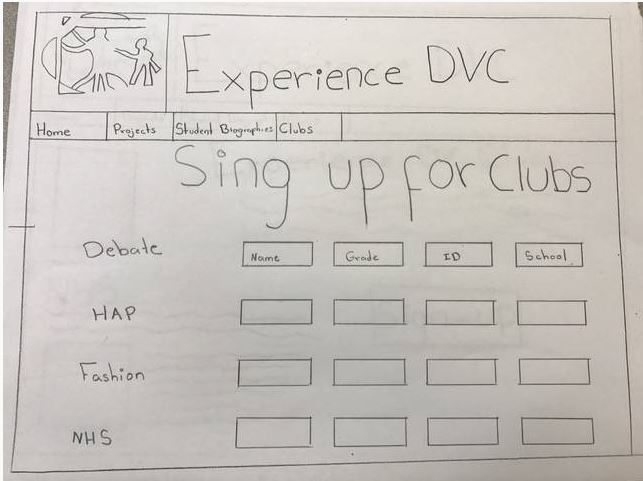 Experience DVC
Home Projects Student Biographies Clubs
Sing up for Clubs
Debate Name Grade ID School
HAP
Fashion
NHS